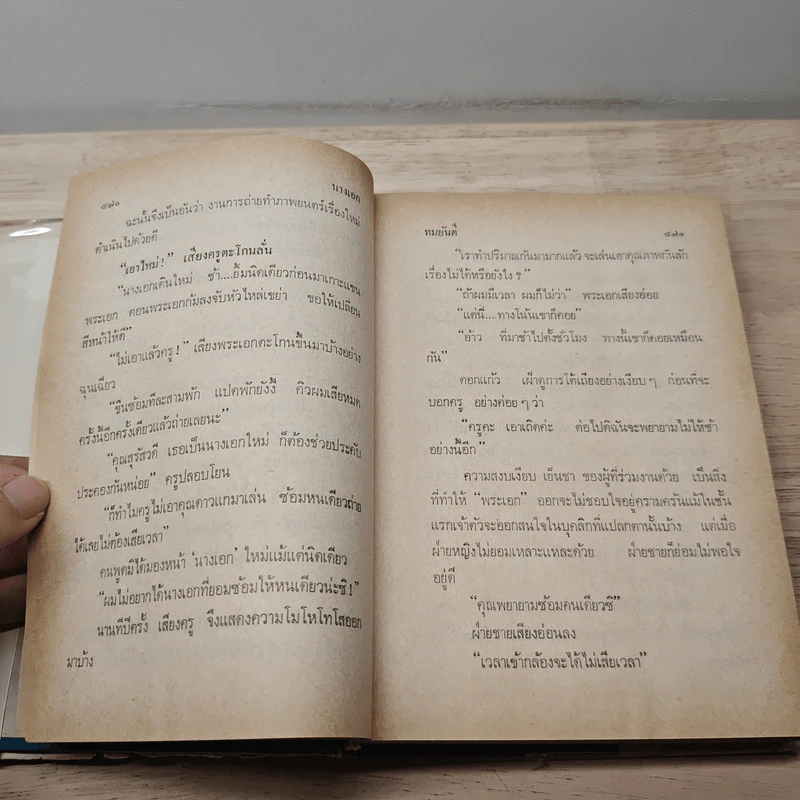 ๔๗๐
นางเอก
ฉะนั้นจึงเป็นอันว่า งานการถ่ายทำภาพยนตร์เรื่องใหม่
ดำเนินไปด้วยดี
“เอาใหม่!” เสียงครูตะโกนลั่น
“นางเอกเดินใหม่ ช้า....ยิ้มนิดเดียวก่อนมาเกาะแขน
พระเอก ตอนพระเอกก้มลงจับหัวไหล่เขย่า ขอให้เปลี่ยน
สีหน้าให้ดี”
“ไม่เอาแล้วครู!” เสียงพระเอกตะโกนขึ้นมาบ้างอย่าง
ฉุนเฉียว
“ขืนซ้อมทีละสามพัก แปดพักยังงี้ คิวผมเสียหมด
ครั้งนี้อีกครั้งเดียวแล้วถ่ายเลยนะ”
“คุณสุรัสวดี เธอเป็นนางเอกใหม่ ก็ต้องช่วยประคับ
ประคองกันหน่อย” ครูปลอบโยน
“ก็ทำไมครูไม่เอาคุณดาวแกมาเล่น ซ้อมหนเดียวถ่าย
ได้เลยไม่ต้องเสียเวลา”
คนพูดมิได้มองหน้า ‘นางเอก’ ใหม่แม้แต่นิดเดียว
“ผมไม่อยากได้นางเอกที่ยอมซ้อมให้หนเดียวน่ะซิ!”
นานทีปีครั้ง เสียงครู จึงแสดงความโมโหโทโสออก
มาบ้าง
ทมยันตี
๔๗๑
“เราทำปริมาณกันมามากแล้ว จะเล่นเอาคุณภาพกันสัก
เรื่องไม่ได้หรือยังไง?”
“ถ้าผมมีเวลา ผมก็ไม่ว่า” พระเอกเสียงอ่อย
“แต่นี่... ทางโน้นเขาก็คอย”
“อ้าว ที่มาช้าไปตั้งชั่วโมง ทางนี้เขาก็คอยเหมือน
กัน”
ดอกแก้ว เฝ้าดูการโต้เถียงอย่างเงียบๆ ก่อนที่จะ
บอกครู อย่างค่อยๆ ว่า
“ครูคะ เอาเถิดค่ะ ต่อไปดิฉันจะพยายามไม่ให้ช้า
อย่างนี้อีก”
ความสงบเงียบ เย็นชา ของผู้ที่ร่วมงานด้วย เป็นสิ่ง
ที่ทำให้ “พระเอก” ออกจะไม่ชอบใจอยู่ครามครันแม้ในชั้น
แรกเจ้าตัวจะออกสนใจในบุคลิกที่แปลกตานั้นบ้าง แต่เมื่อ
ฝ่ายหญิงไม่ยอมเหลาะแหละด้วย ฝ่ายชายก็ย่อมไม่พอใจ
อยู่ดี
“คุณพยายามซ้อมคนเดียวซิ”
ฝ่ายชายเสียงอ่อนลง
“เวลาเข้ากล้องจะได้ไม่เสียเวลา”